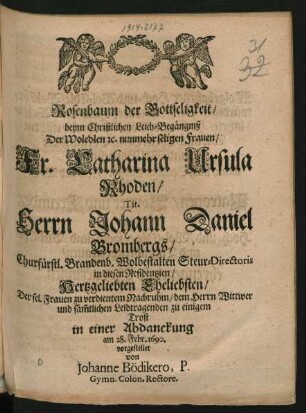 1914.2177
32
Rosenbaum der Gottseligkeit/
beym Christlichen Leich-Begängniß
Der Woledlen ꝛc. nunmehr seligen Frauen/
Fr. Catharina Ursula
Rhoden/
Tit.
Herrn Johann Daniel
Brombergs/
Churfürstl. Brandenb. Wolbestalten Steur-Directoris
in diesen Residenzien/
Hertzgeliebten Eheliebsten/
Der sel. Frauen zu verdientem Nachruhm/ dem Herrn Wittwer
und sämtlichen Leidtragenden zu einigem
Trost
in einer Abdanckung
am 28. Febr. 1690.
vorgestellet
von
Johanne Bödikero, P.
Gymn. Colon. Rectore.